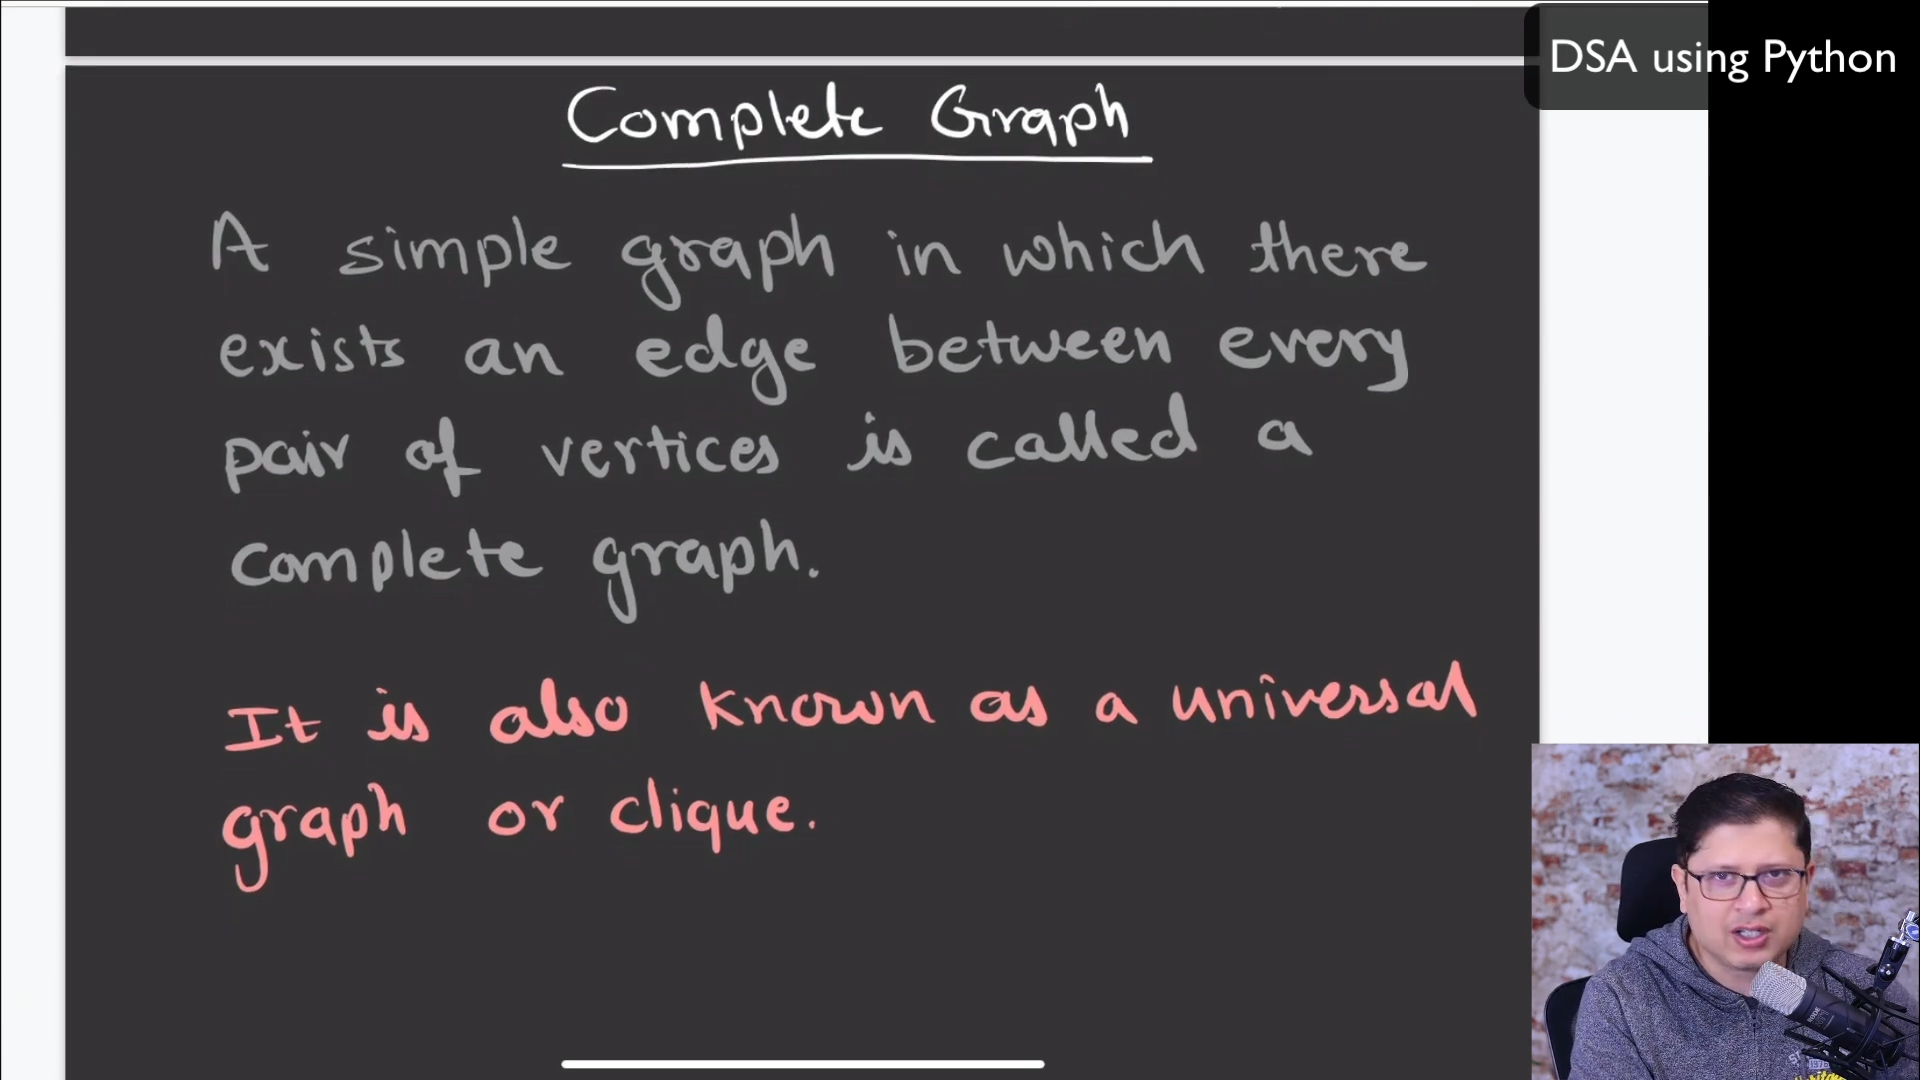 DSA using Python
Complete Graph
A simple graph in which there
exists an edge between every
pair of vertices is called a
complete graph.
It is also known as a universal
graph or clique.